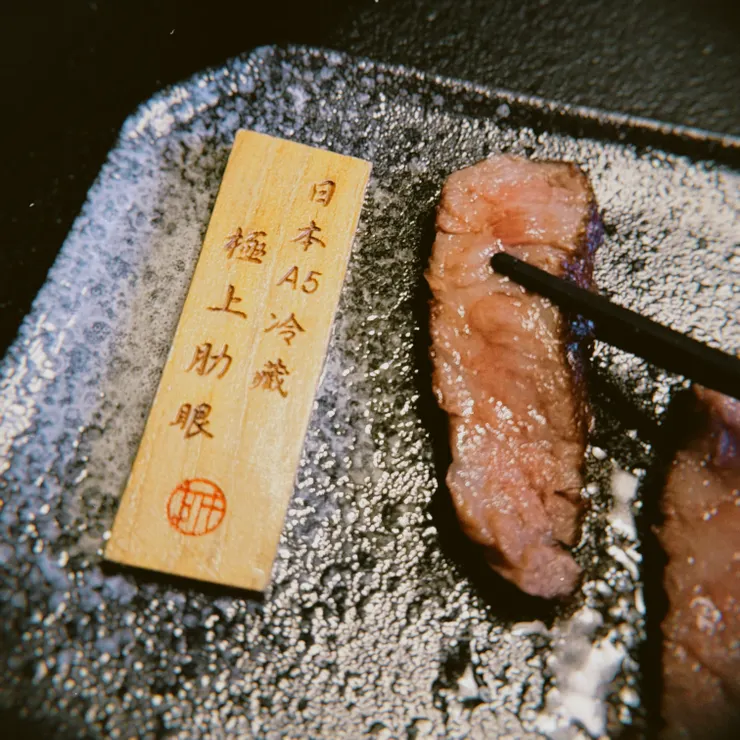 日本A5冷藏
極上肋眼